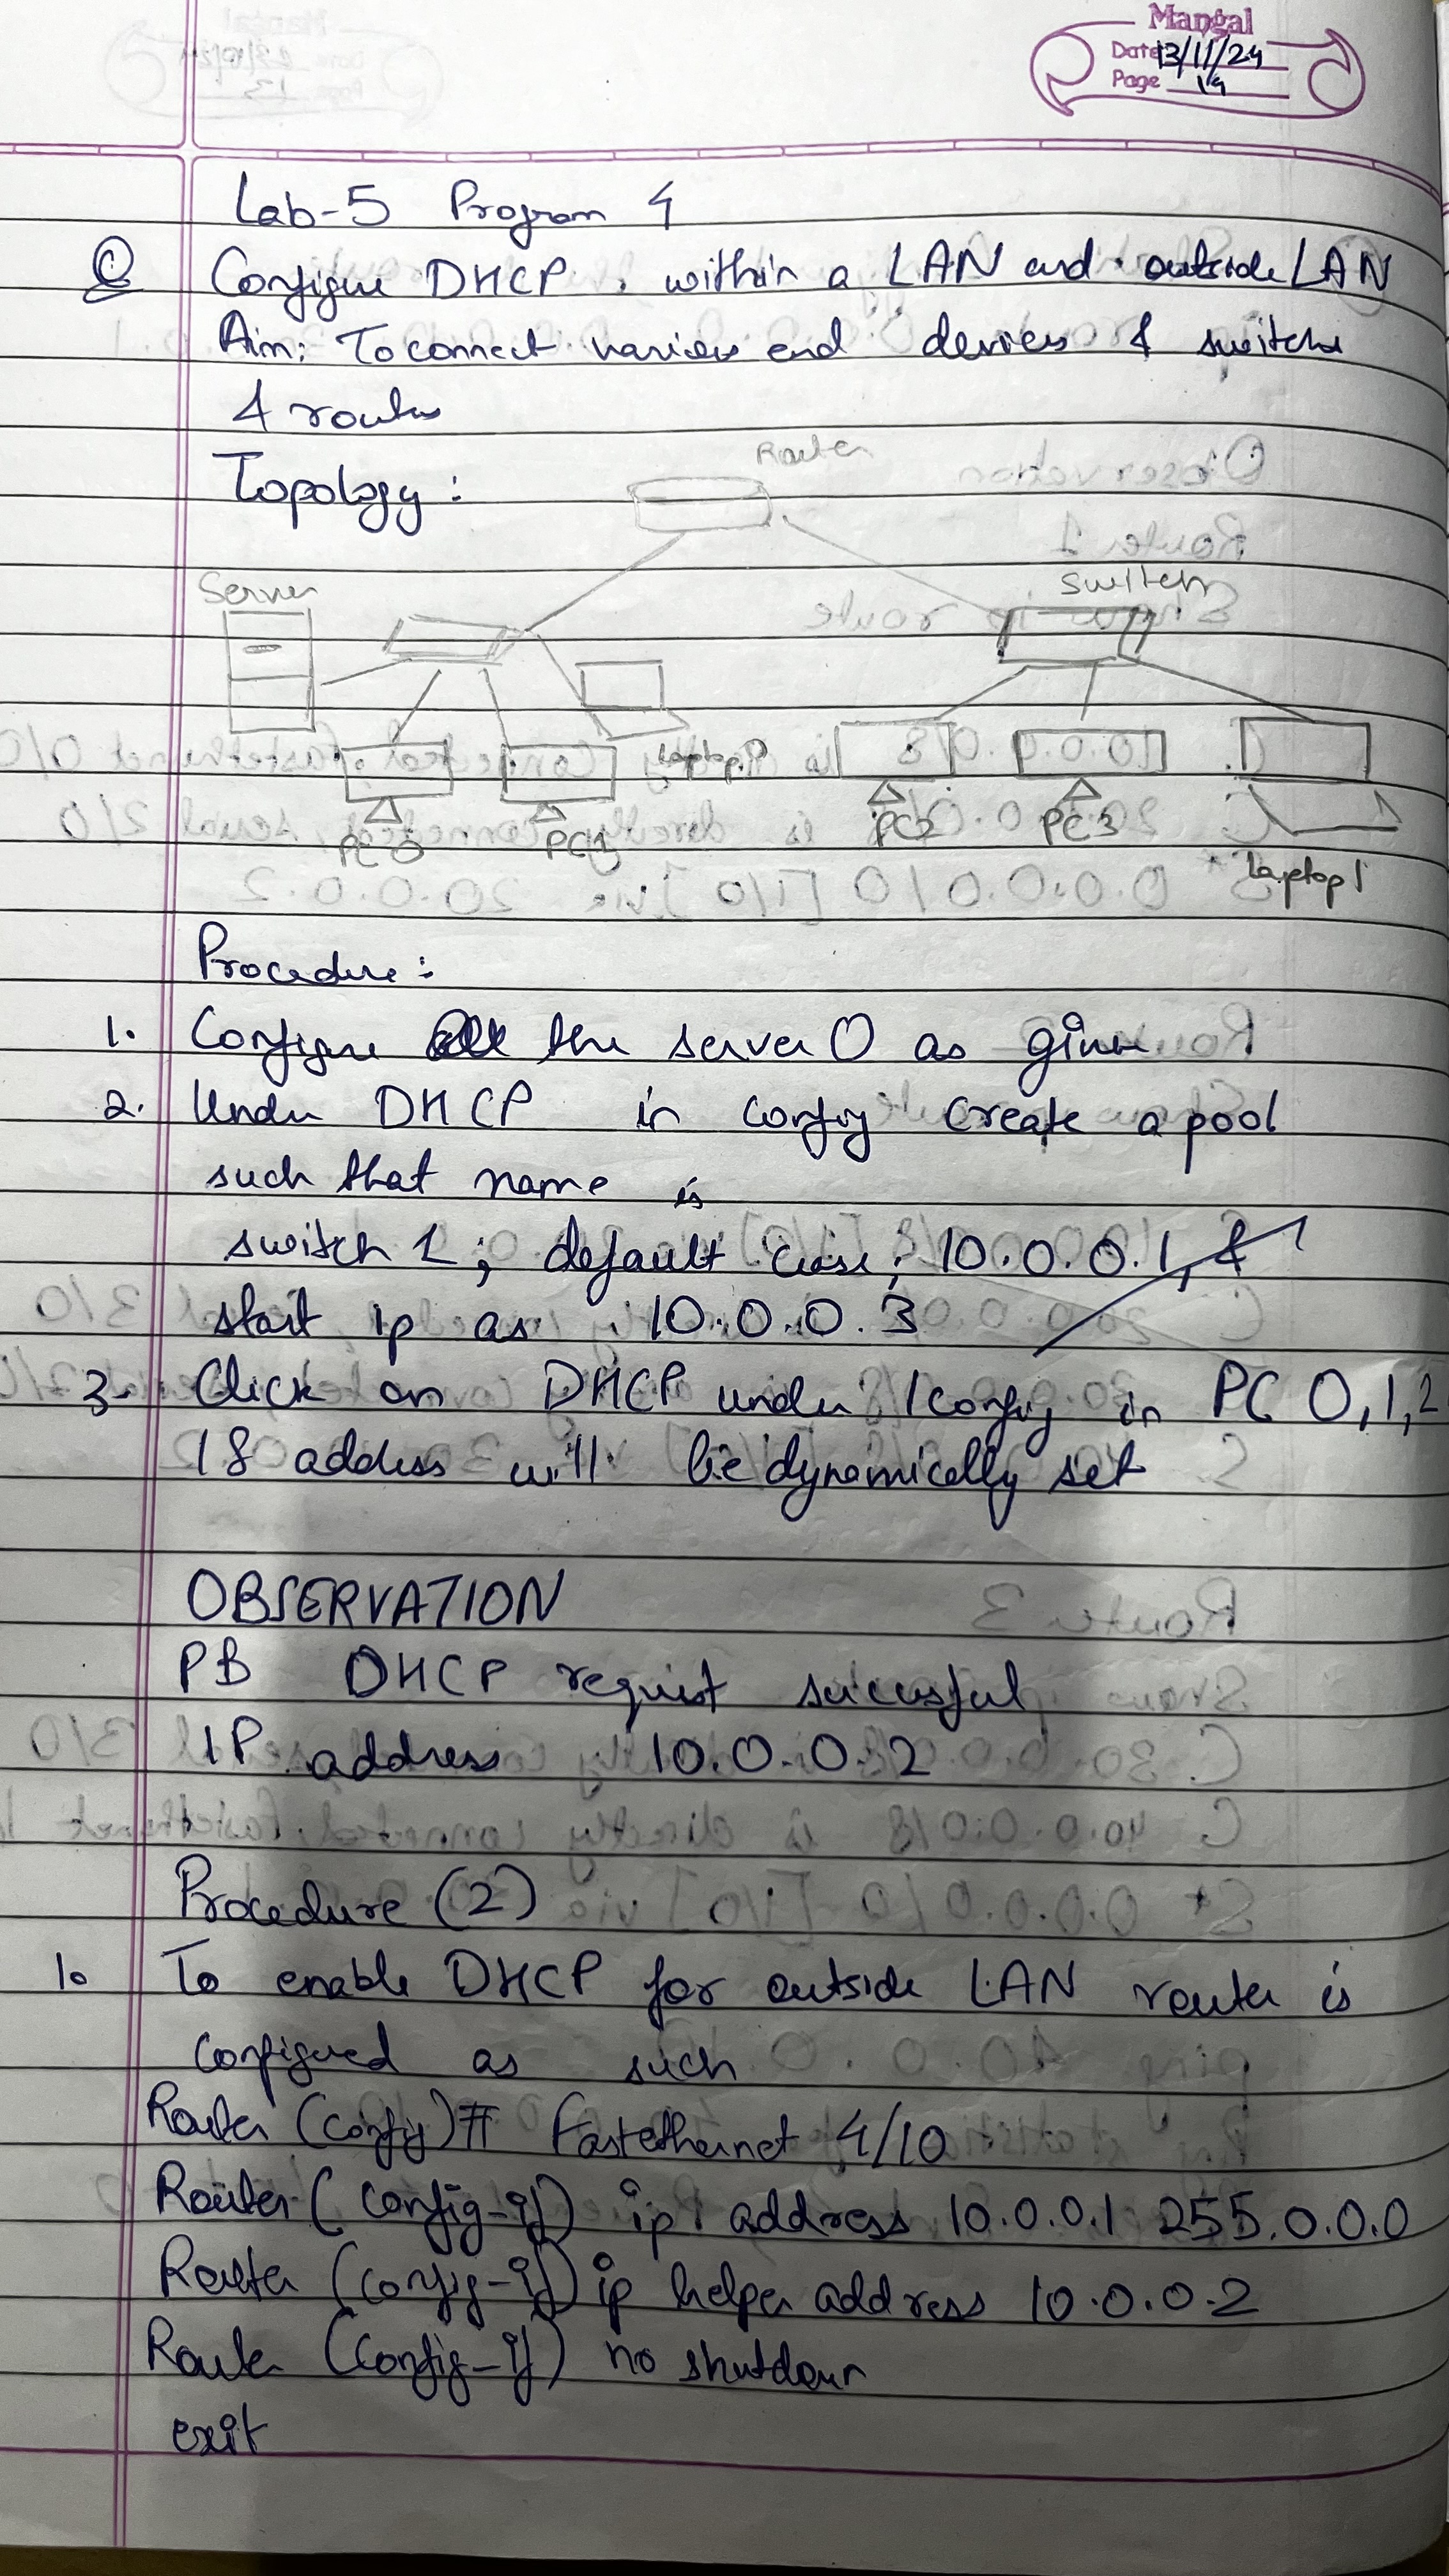 Mangal
Date 13/11/24
Page 19
Lab-5 Program 4
Q Configure DHCP within a LAN and outside LAN
Aim: To connect various end devices & switches
& routes
Topology:
Router
Server
Switch
Laptop 0
PC 0
PC1
PC2
PC3
Laptop 1
Procedure:
1. Configure the server 0 as given
2. Under DHCP in config create a pool
such that name is
switch 1; default case; 10.0.0.1, &
start ip as 10.0.0.3
3. Click on DHCP under config in PC 0,1,2
address will be dynamically set
OBSERVATION
PB DHCP request successful
IP address 10.0.0.2
Procedure (2)
1. To enable DHCP for outside LAN router is
configured as such
Router (config)# Fastethernet 4/10
Router (config-if) ip address 10.0.0.1 255.0.0.0
Router (config-if) ip helper address 10.0.0.2
Router (config-if) no shutdown
exit